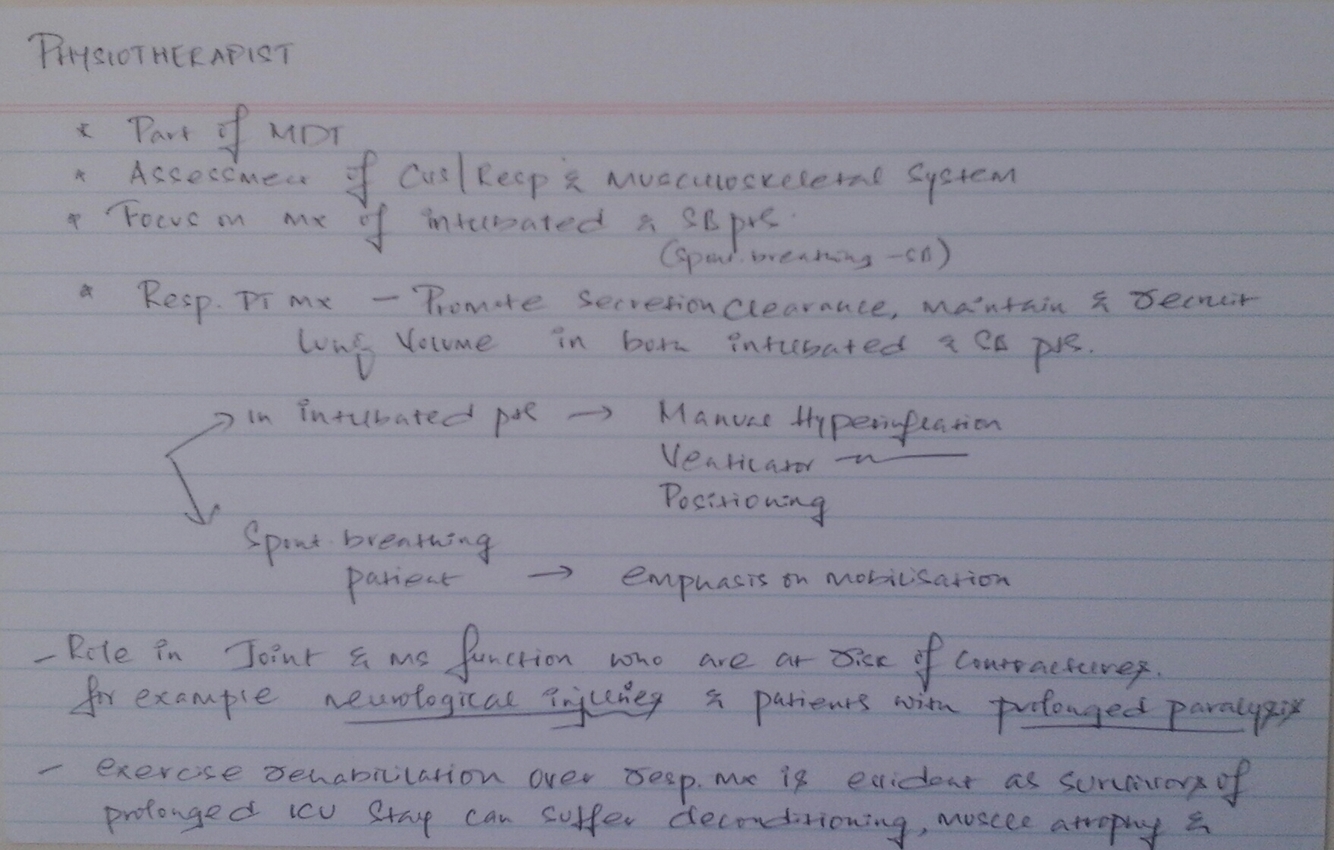 PHYSIOTHERAPIST
* Part of MDT
* Assessment of CVS/Resp & Musculoskeletal System
* Focus on Mx of intubated & SB pts.
(Spont. breathing - SB)
* Resp. PT Mx - Promote Secretion Clearance, maintain & recruit
Lung Volume in both intubated & SB pts.
→ In intubated pts → Manual Hyperinflation
Ventilator —〃—
Positioning
Spont. breathing
patient → emphasis on mobilisation
- Role in Joint & MS function who are at risk of contractures.
for example neurological injuries & patients with prolonged paralysis
- exercise rehabilitation over resp. mx is evident as survivors of
prolonged ICU Stay can suffer deconditioning, muscle atrophy &